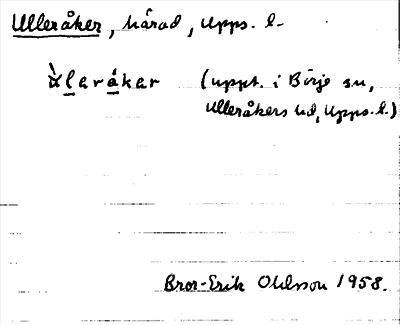 Ulleråker, härad, Upps. l.
ùleråker (uppt. i Börje sn,
Ulleråkers hd, Upps. l.)
Bror-Erik Ohlsson 1958.